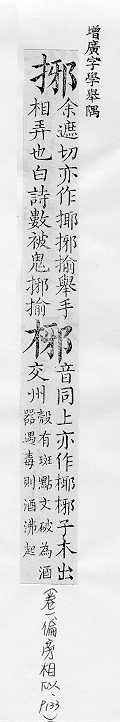 增廣字學舉隅
捓
余遮切亦作揶捓揄舉手
相弄也白詩數被鬼捓揄
㭨
音同上亦作椰㭨子木出
交州
殼有斑點文破為酒
器遇毒則酒沸起
(卷一、偏旁相似、P133)